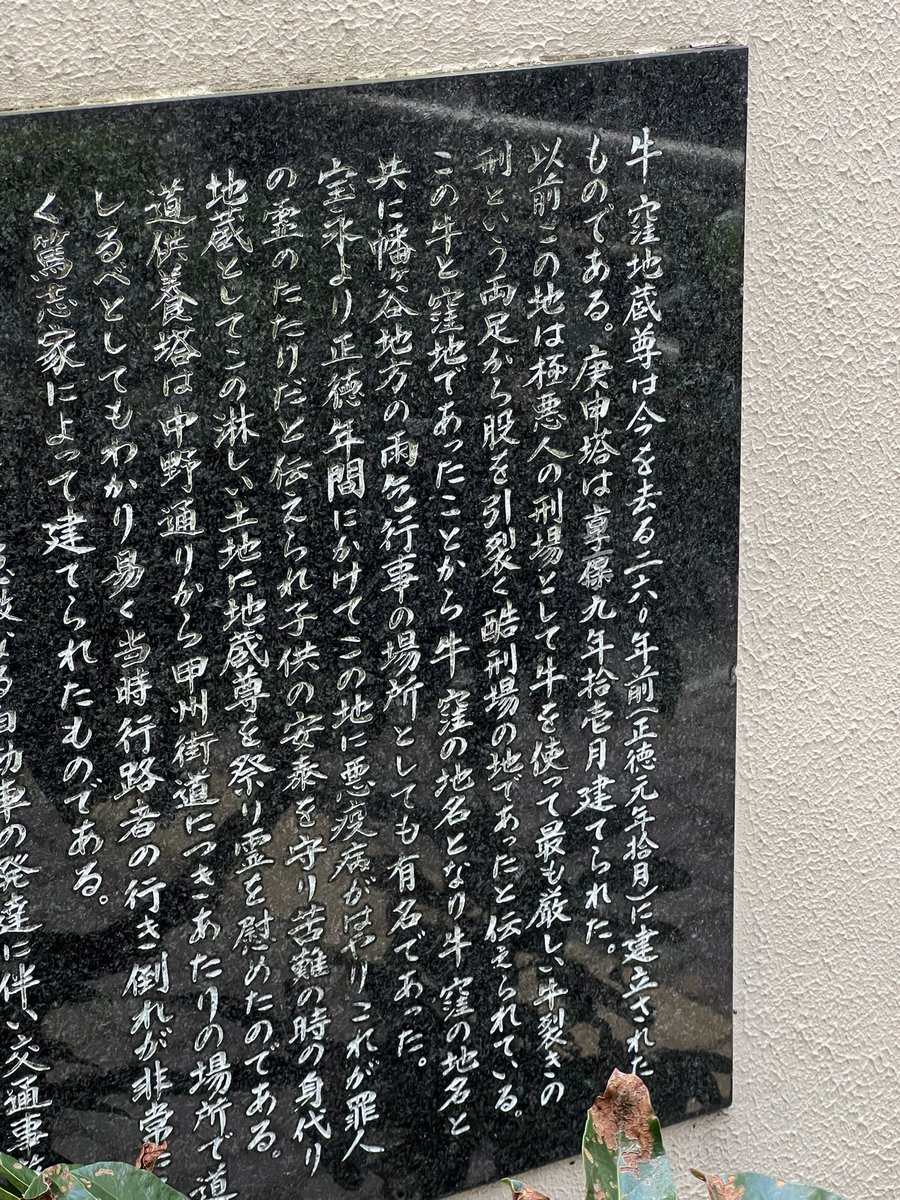 牛窪地蔵尊は今を去る二六〇年前(正徳元年拾月)に建立された
ものである。庚申塔は享保九年拾壱月建てられた。
以前この地は極悪人の刑場として牛を使って最も厳しい牛裂きの
刑という両足から股を引裂く酷刑場の地であったと伝えられている。
この牛と窪地であったことから牛窪の地名となり牛窪の地名と
共に幡ヶ谷地方の雨乞行事の場所としても有名であった。
宝永より正徳年間にかけてこの地に悪疫病がはやりこれが罪人
の霊のたたりだと伝えられ子供の安泰を守り苦難の時の身代り
地蔵としてこの淋しい土地に地蔵尊を祭り霊を慰めたのである。
道供養塔は中野通りから甲州街道につきあたりの場所で道
しるべとしてもわかり易く当時行路者の行き倒れが非常に
く篤志家によって建てられたものである。
なる自動車の発達に伴い交通事